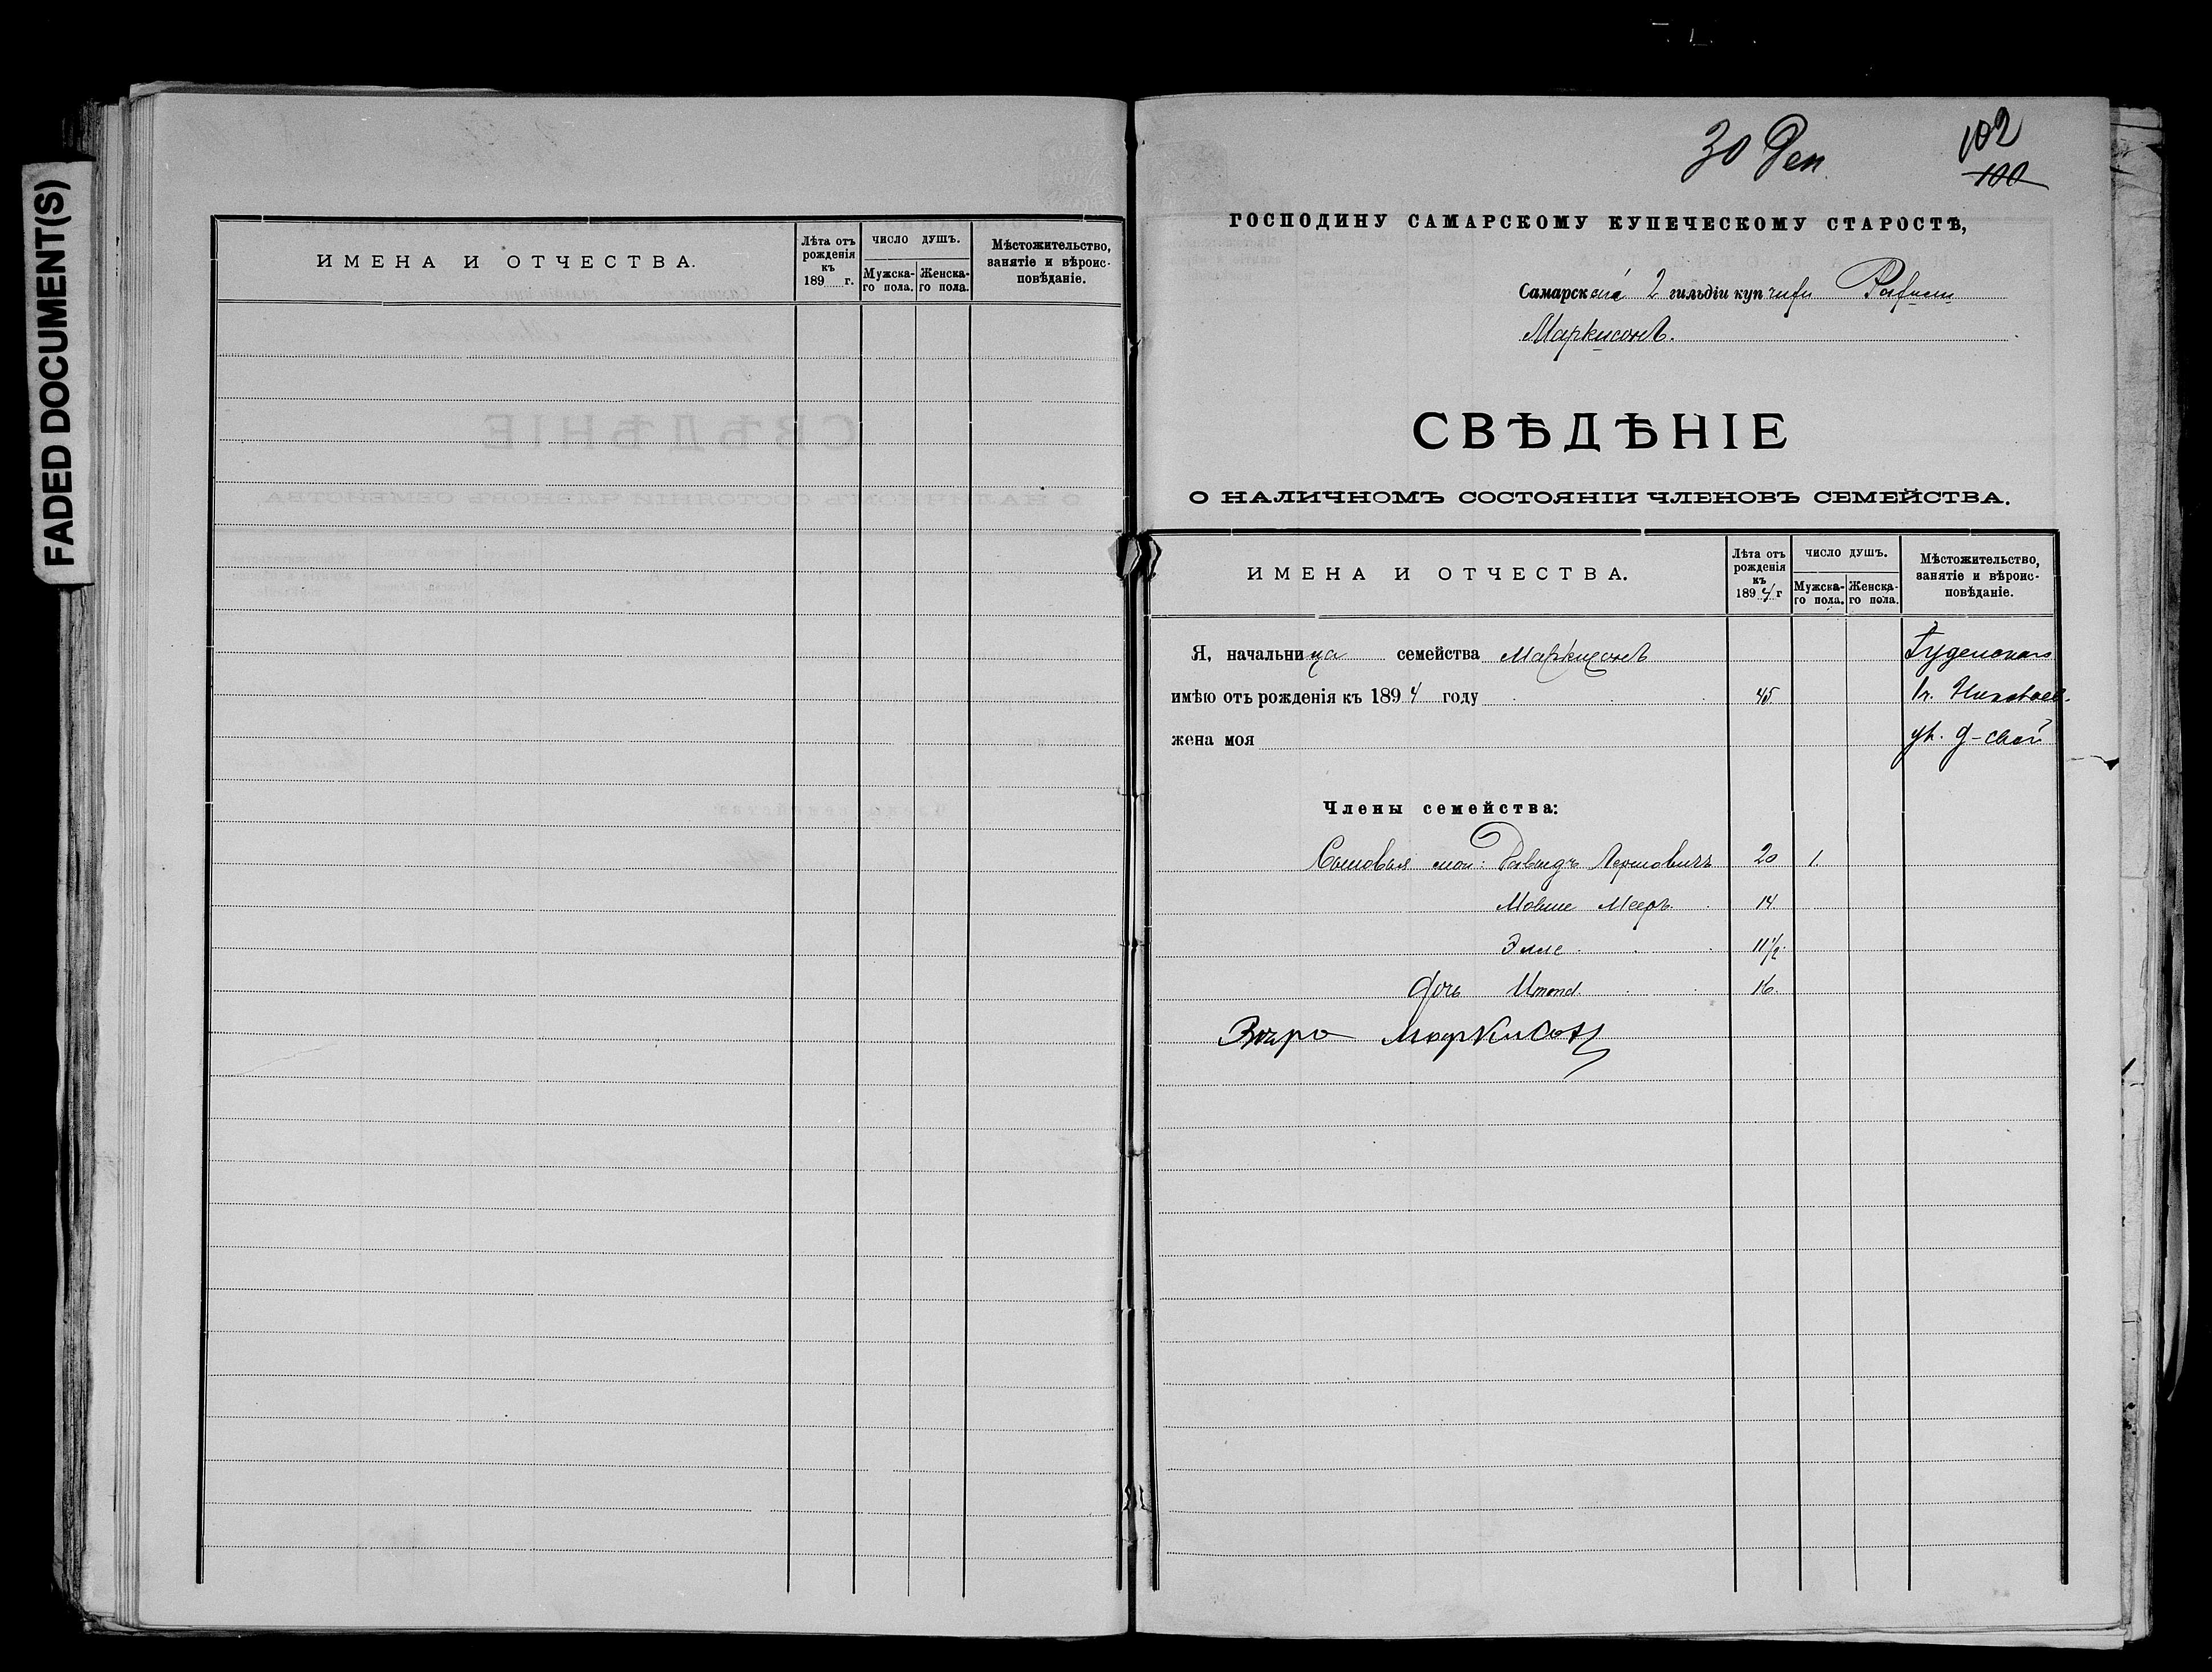 FADED DOCUMENT(S)
ИМЕНА И ОТЧЕСТВА.
Лѣта отъ рожденія къ 189 г.
ЧИСЛО ДУШЪ.
Мужска-го пола.
Женска-го пола.
Мѣстожительство, занятіе и вѣроис-повѣданіе.
30 Дек.
102
100
ГОСПОДИНУ САМАРСКОМУ КУПЕЧЕСКОМУ СТАРОСТѢ,
Самарской 2 гильдіи куп
Маркисонъ.
СВѢДѢНІЕ
О НАЛИЧНОМЪ СОСТОЯНІИ ЧЛЕНОВЪ СЕМЕЙСТВА.
ИМЕНА И ОТЧЕСТВА.
Лѣта отъ рожденія къ 1894 г
ЧИСЛО ДУШЪ.
Мужска-го пола.
Женска-го пола.
Мѣстожительство, занятіе и вѣроис-повѣданіе.
Я, начальница семейства Маркисонъ
имѣю отъ рожденія къ 1894 году 45
жена моя ук. д-свой
Члены семейства:
Сыновья мои: Давидъ Лермовичъ 20 1.
Мовше Мееръ 14
Эмле 11 1/2
Дочь 16.
Маркисон